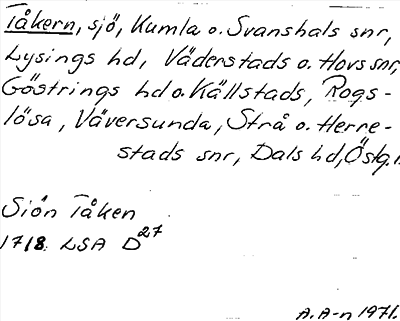 Tåkern, sjö, Kumla o. Svanshals snr,
Lysings hd, Väderstads o. Hovs snr,
Göstrings hd o. Källstads, Rogs-
lösa, Väversunda, Strå o. Herre-
stads snr, Dals hd, Östg.l.
Siön Tåken
1718. LSA D27
A. A-n 1971.